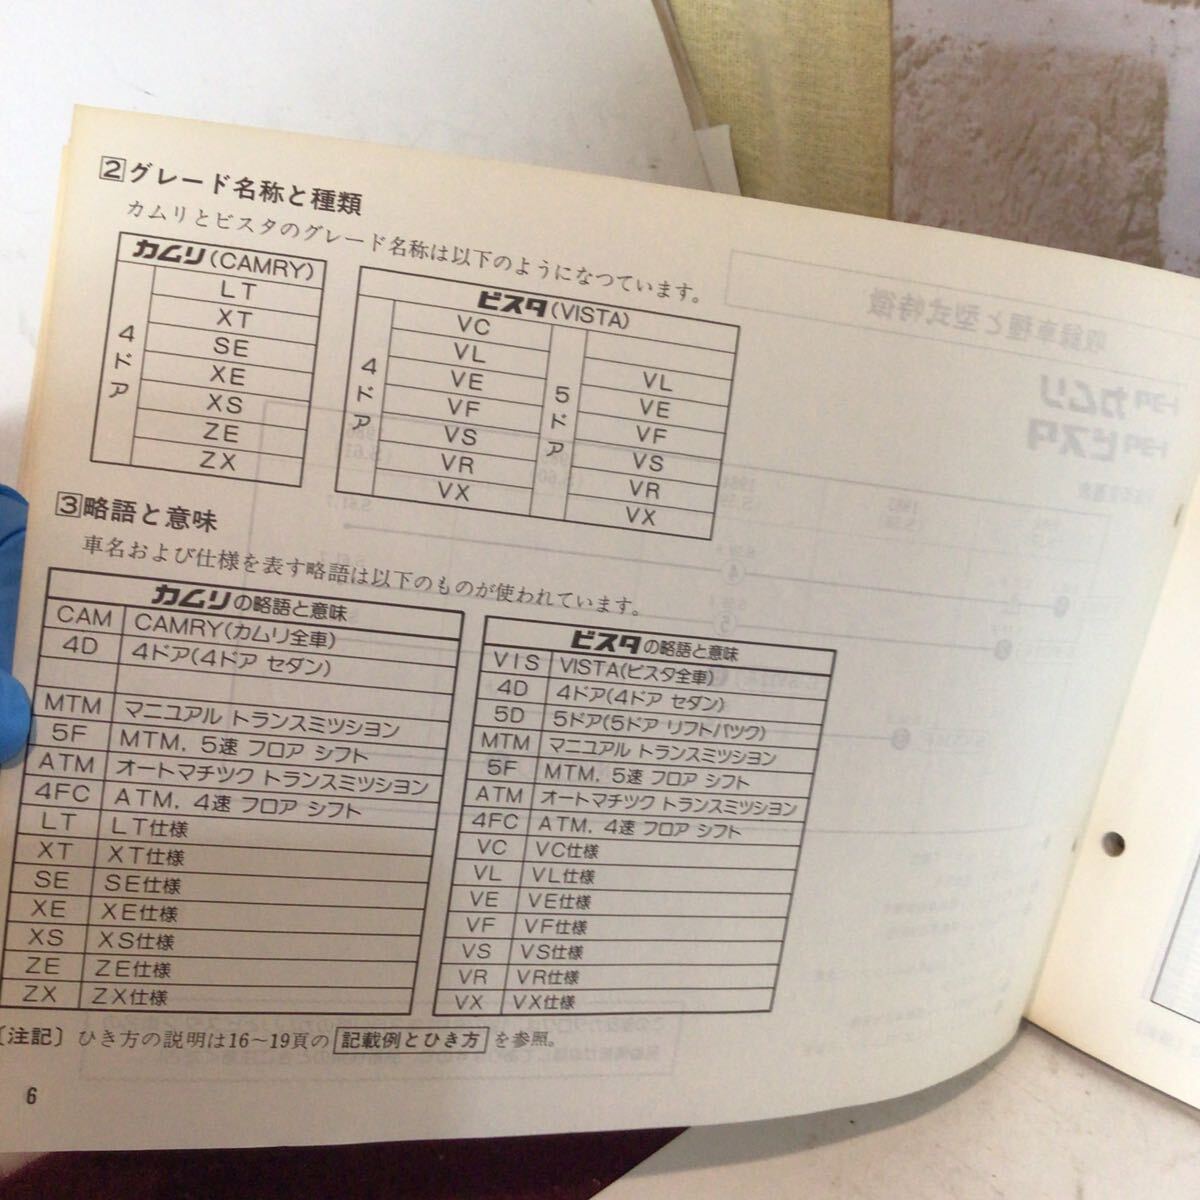 2グレード名称と種類
カムリとビスタのグレード名称は以下のようになつています。
カムリ(CAMRY)
4ドア
LT
XT
SE
XE
XS
ZE
ZX
ビスタ(VISTA)
4ドア
VC
VL
VE
VF
VS
VR
VX
5ドア
VL
VE
VF
VS
VR
VX
3略語と意味
車名および仕様を表す略語は以下のものが使われています。
カムリの略語と意味
CAM CAMRY(カムリ全車)
4D 4ドア(4ドア セダン)
MTM マニユアル トランスミツシヨン
5F MTM, 5速 フロア シフト
ATM オートマチツク トランスミツシヨン
4FC ATM, 4速 フロア シフト
LT LT仕様
XT XT仕様
SE SE仕様
XE XE仕様
XS XS仕様
ZE ZE仕様
ZX ZX仕様
ビスタの略語と意味
VIS VISTA(ビスタ全車)
4D 4ドア(4ドア セダン)
5D 5ドア(5ドア リフトバツク)
MTM マニユアル トランスミツシヨン
5F MTM, 5速 フロア シフト
ATM オートマチツク トランスミツシヨン
4FC ATM, 4速 フロア シフト
VC VC仕様
VL VL仕様
VE VE仕様
VF VF仕様
VS VS仕様
VR VR仕様
VX VX仕様
〔注記〕ひき方の説明は16~19頁の 記載例とひき方 を参照。
6